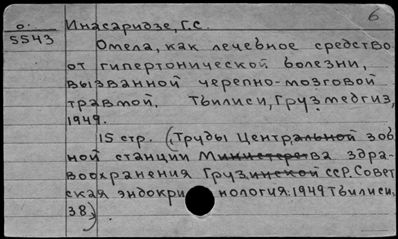 6
о.
5543
Инасаридзе, Г.С.
Омела, как лечебное средство
от гипертонической болезни,
вызванной черепно-мозговой
травмой. Тбилиси, Грузмедгиз,
1949.
15 стр. (Труды Центральной зоб
ной станции Министерства здра-
воохранения Грузинской ССР. Совет
ская эндокри нология. 1949 Тбилиси,
38)